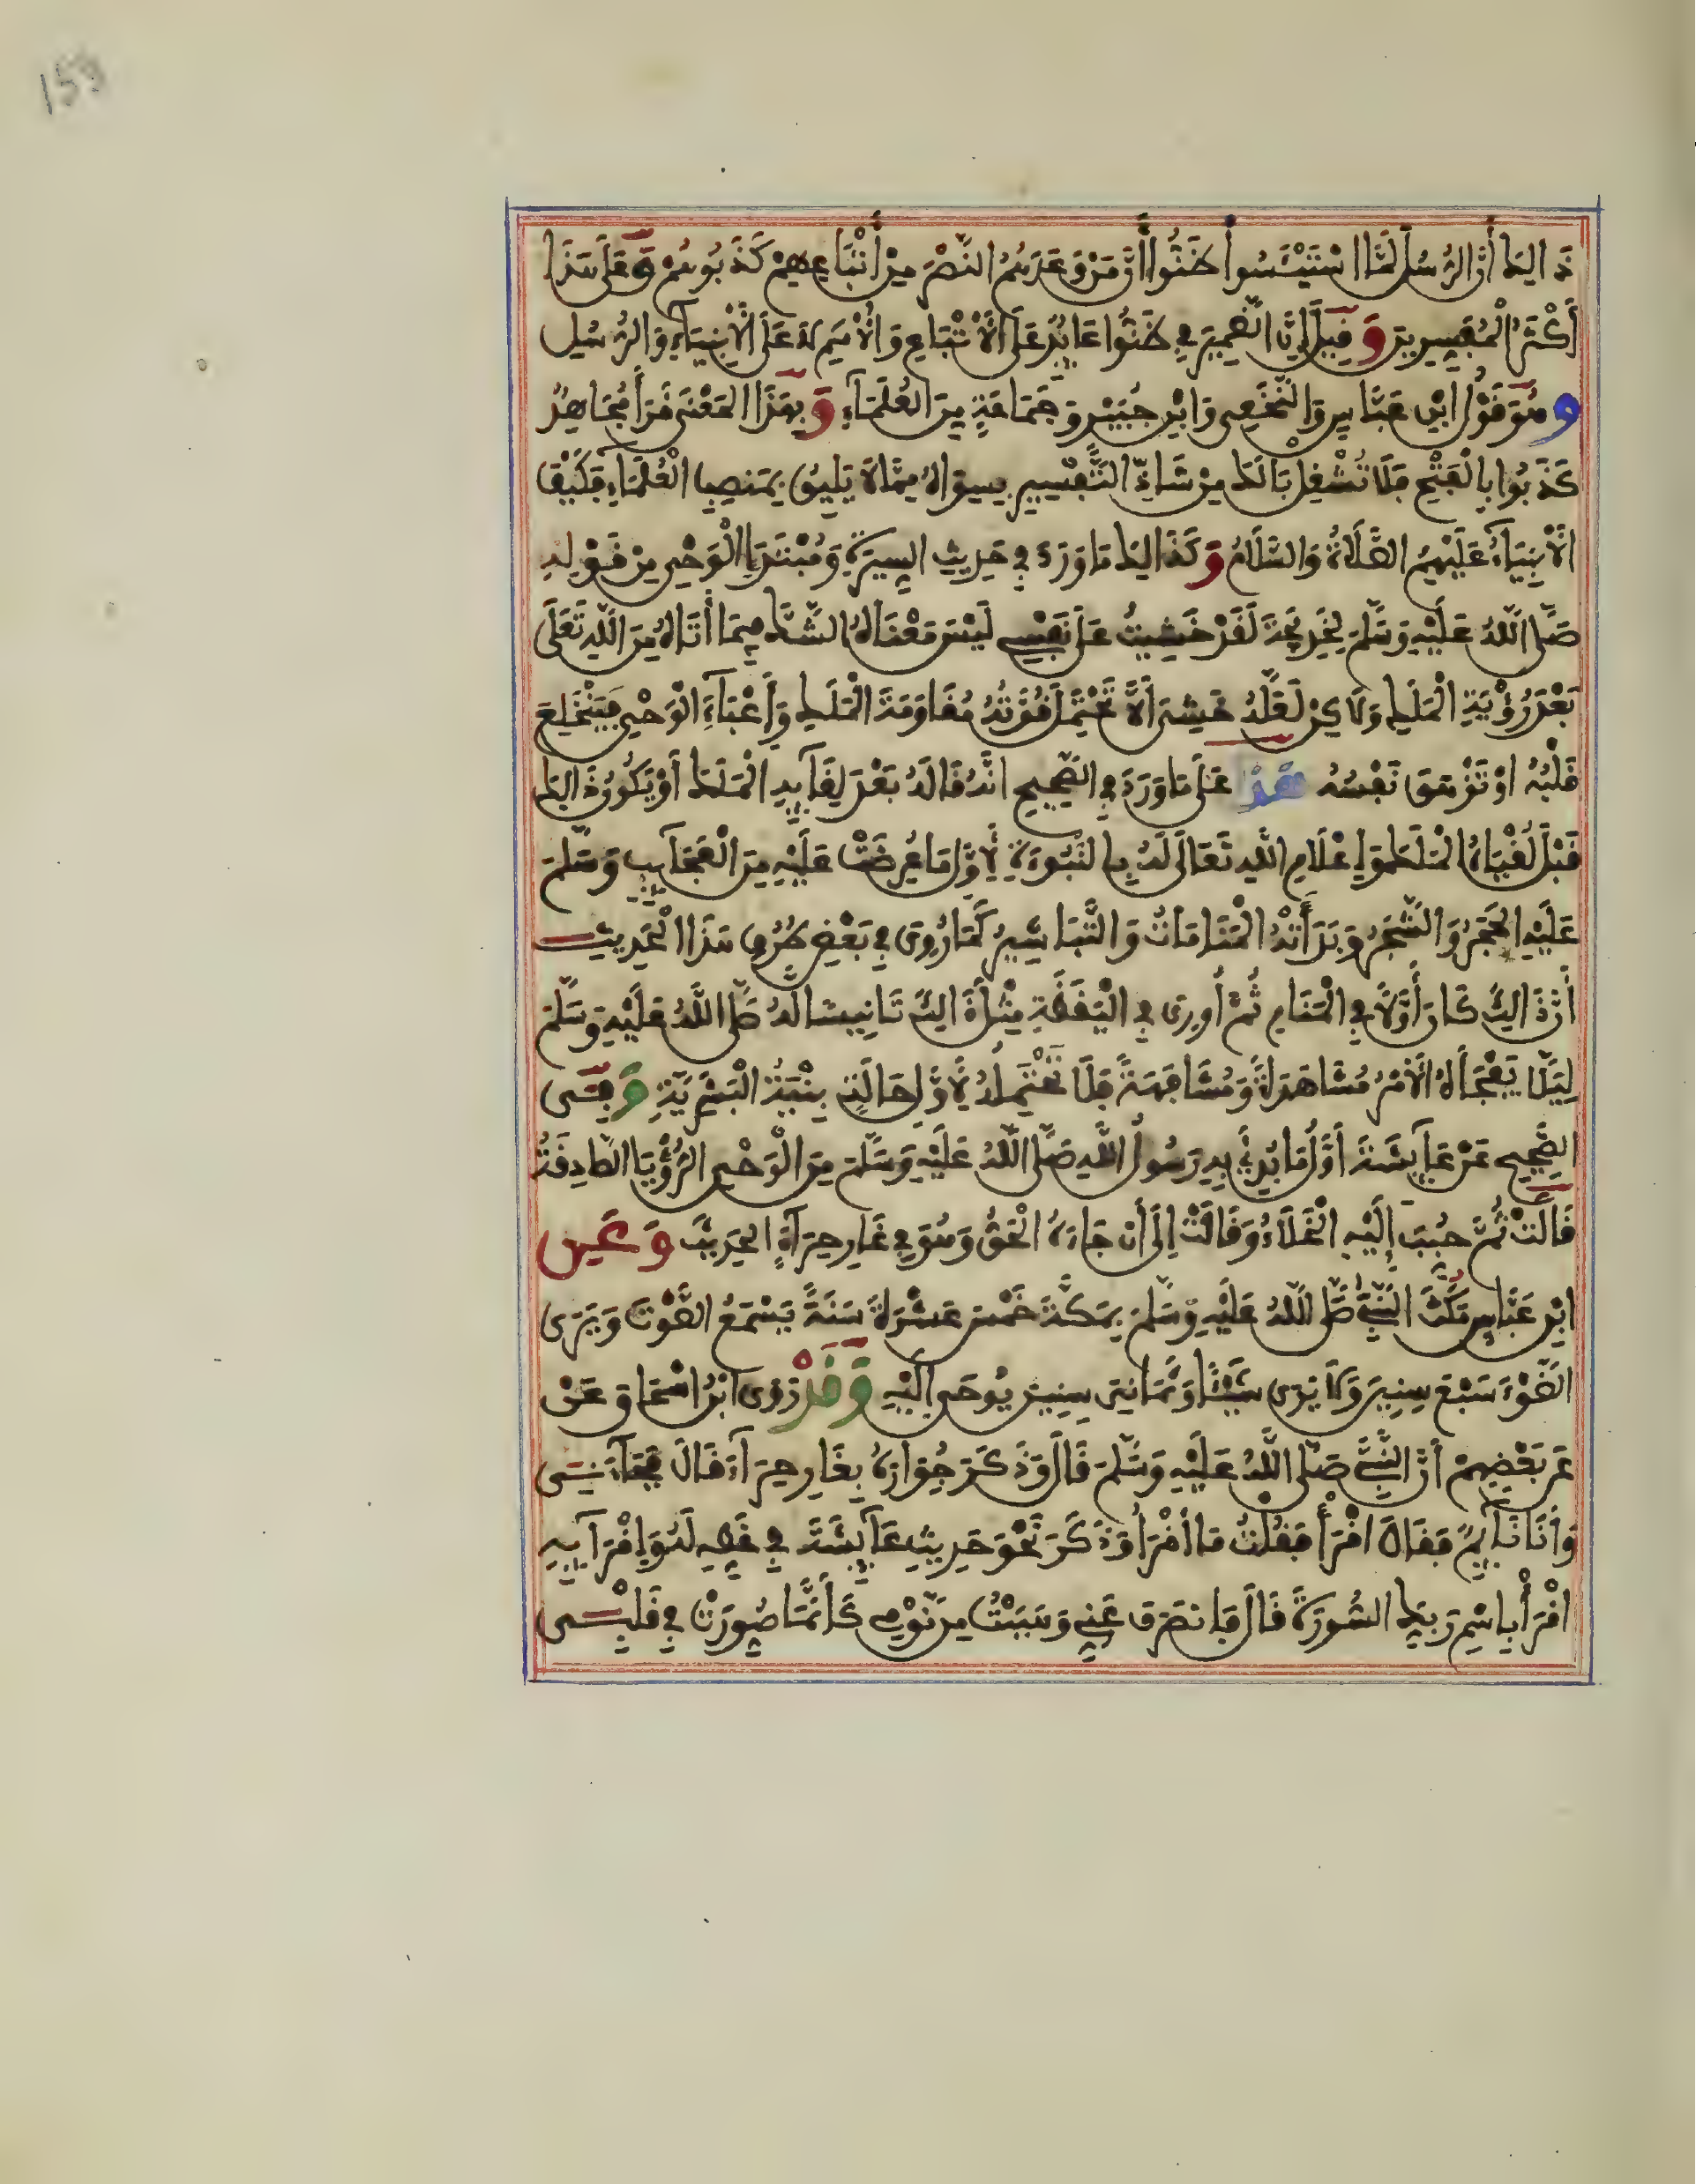 159
ذَالِكَ أَنَّ الرُّسُلَ لَمَّا اسْتَيْـَٔسُوا ظَنُّوا أَنَّ مَنْ وَعَدَهُمُ النَّصْرَ مِنْ أَتْبَاعِهِمْ كَذَبُوهُمْ وَعَلَى هَذَا
أَكْثَرُ الْمُفَسِّرِينَ وَقِيلَ إِنَّ الضَّمِيرَ فِي ظَنُّوا عَائِدٌ عَلَى الْأَتْبَاعِ وَالْأُمَمِ لَا عَلَى الْأَنْبِيَاءِ وَالرُّسُلِ
وَهُوَ قَوْلُ ابْنِ عَبَّاسٍ وَالنَّخَعِي وَابْنِ جُبَيْرٍ وَجَمَاعَةٍ مِنَ الْعُلَمَاءِ وَبِهَذَا الْمَعْنَى قَرَأَ مُجَاهِدٌ
كَذَبُوا بِالْفَتْحِ فَلَا تُشْغِلْ بَالَكَ مِنْ شَاذِّ التَّفْسِيرِ بِسِوَاهُ مِمَّا لَا يَلِيقُ بِمَنْصِبِ الْعُلَمَاءِ فَكَيْفَ
الْأَنْبِيَاءُ عَلَيْهِمُ الصَّلَاةُ وَالسَّلَامُ وَكَذَالِكَ مَا وَرَدَ فِي حَدِيثِ السِّيرَةِ وَمُبْتَدَإِ الْوَحْيِ مِنْ قَوْلِهِ
صَلَّى اللَّهُ عَلَيْهِ وَسَلَّمَ لِخَدِيجَةَ لَقَدْ خَشِيتُ عَلَى نَفْسِي لَيْسَ مَعْنَاهُ الشَّكُّ فِيمَا أَتَاهُ مِنَ اللَّهِ تَعَلَى
بَعْدَ رُؤْيَةِ الْمَلَكِ وَلَاكِنْ لَعَلَّهُ خَشِيَ أَلَّا تَحْتَمِلَ قُوَّتُهُ مُقَاوَمَةَ الْمَلَكِ وَأَعْبَاءَ الْوَحْيِ فَيَنْخَلِعَ
قَلْبُهُ اوْ تَزْهَقَ نَفْسُهُ هَذَا عَلَى مَا وَرَدَ فِي الصَّحِيحِ انَّهُ قَالَهُ بَعْدَ لِقَائِهِ الْمَلَكَ أَوْ يَكُونُ ذَالِكَ
قَبْلَ لُقْيَاهُ الْمَلَكَ وَإِعْلَامِ اللَّهِ تَعَالَى لَهُ بِالنُّبُوَّةِ لِأَوَّلِ مَا عُرِضَتْ عَلَيْهِ مِنَ الْعَجَائِبِ وَسَلَّمَ
عَلَيْهِ الْحَجَرُ وَالشَّجَرُ وَبَدَأَتْهُ الْمَنَامَاتُ وَالتَّبَاشِيرُ كَمَا رُوِيَ فِي بَعْضِ طُرُقِ هَذَا الْحَدِيثِ
أَنَّ ذَالِكَ كَانَ أَوَّلًا فِي الْمَنَامِ ثُمَّ أُورِيَ فِي الْيَقَظَةِ مِثْلَ ذَالِكَ تَانِيسًا لَهُ صَلَّى اللَّهُ عَلَيْهِ وَسَلَّمَ
لِيَلَّا يَفْجَأَهُ الْأَمْرُ مُشَاهَدَةً وَمُشَافَهَةً فَلَا تَحْتَمِلُهُ لِأَوَّلِ حَالَةٍ بِنْيَةُ الْبَشَرِيَّةِ وَفِي
الصَّحِيحِ عَنْ عَائِشَةَ أَوَّلُ مَا بُدِئَ بِهِ رَسُولُ اللَّهِ صَلَّى اللَّهُ عَلَيْهِ وَسَلَّمَ مِنَ الْوَحْيِ الرُّؤْيَا الصَّادِقَةُ
قَالَتْ ثُمَّ حُبِّبَ إِلَيْهِ الْخَلَاءُ وَقَالَتْ إِلَى أَن جَاءَهُ الْحَقُّ وَهُوَ فِي غَارِ حِرَاءٍ الْحَدِيثَ وَعَنِ
ابْنِ عَبَّاسٍ مَكَثَ النَّبِيُّ صَلَّى اللَّهُ عَلَيْهِ وَسَلَّمَ بِمَكَّةَ خَمْسَ عَشْرَةَ سَنَةً يَسْمَعُ الصَّوْتَ وَيَرَى
الضَّوْءَ سَبْعَ سِنِينَ وَلَا يَرَى شَيْئًا وَثَمَانِيَ سِنِينَ يُوحَى إِلَيْهِ وَقَدْ رَوَى ابْنُ اسْحَاقَ عَنْ
عَن بَعْضِهِمْ أَنَّ النَّبِيَّ صَلَّى اللَّهُ عَلَيْهِ وَسَلَّمَ قَالَ وَذَكَرَ جِوَارَهُ بِغَارِ حِرَاءٍ قَالَ فَجَاءَنِي
وَأَنَا نَائِمٌ فَقَالَ اقْرَأْ فَقُلْتُ مَا أَقْرَأُ وَذَكَرَ نَحْوَ حَدِيثِ عَائِشَةَ فِي غَطِّهِ لَهُ وَإِقْرَائِهِ
اقْرَأْ بِاسْمِ رَبِّكَ السُّورَةَ قَالَ فَانصَرَفَ عَنِّي وَهَبَبْتُ مِن نَوْمِي كَأَنَّمَا صُوِّرَتْ فِي قَلْبِي